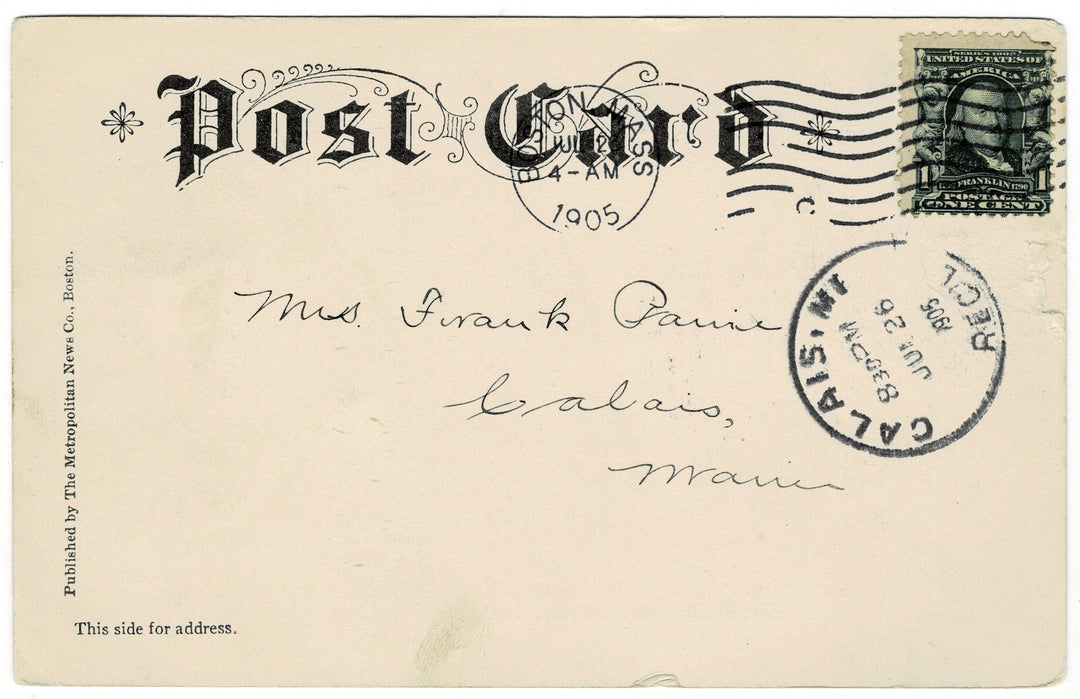 Post Card
BOSTON, MASS
JUL 26
4-AM
1905
C
SERIES 1902
UNITED STATES OF
AMERICA
1 FRANKLIN 1790 1
POSTAGE
ONE CENT
CALAIS, ME
830PM
JUL 26
1905
REC'D
Mrs. Frank
Calais,
Maine
Published by The Metropolitan News Co., Boston.
This side for address.